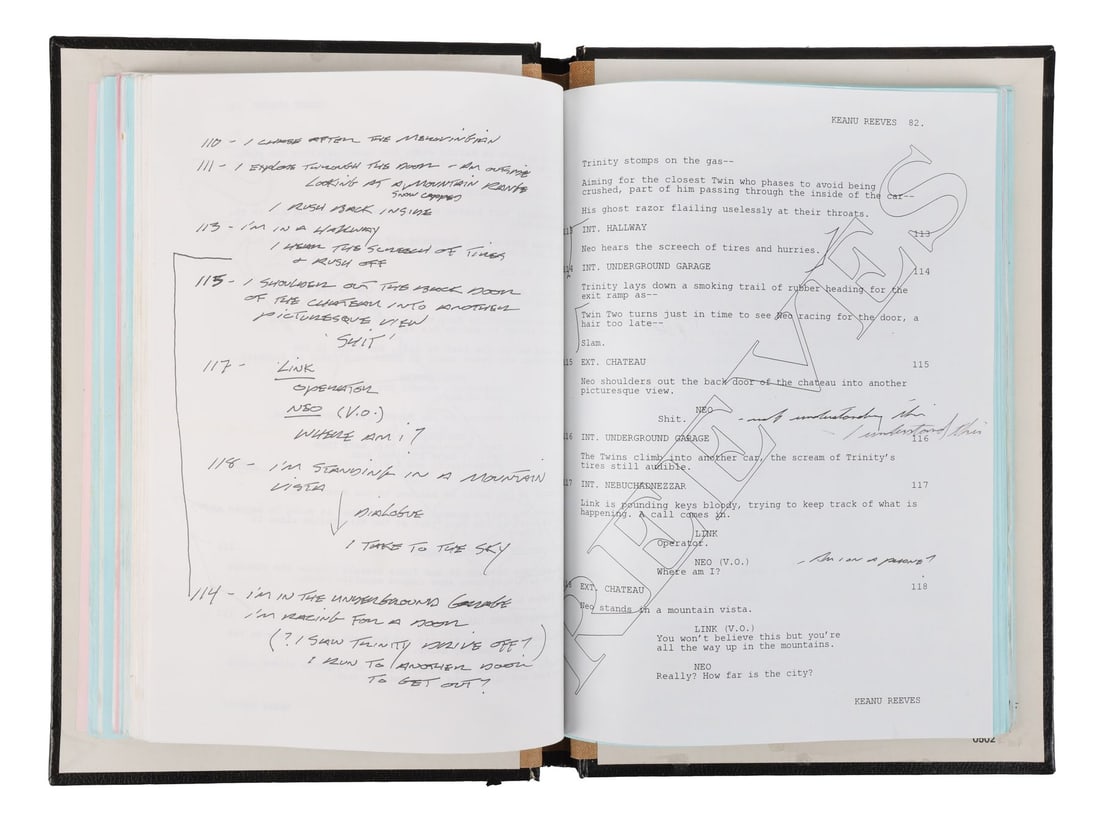 110 - I CHASE AFTER THE MEROVINGIAN
111 - I EXPLODE THROUGH THE DOOR - AM OUTSIDE
LOOKING AT A MOUNTAIN RANGE
SNOW CAPPED
I RUSH BACK INSIDE
113 - I'M IN A HALLWAY
I HEAR THE SCREECH OF TIRES
+ RUSH OFF
115 - I SHOULDER OUT THE BACK DOOR
OF THE CHATEAU INTO ANOTHER
PICTURESQUE VIEW
'SHIT'
117 - LINK
OPERATOR
NEO (V.O.)
WHERE AM I?
118 - I'M STANDING IN A MOUNTAIN
VISTA
DIALOGUE
I TAKE TO THE SKY
114 - I'M IN THE UNDERGROUND GARAGE
I'M RACING FOR A DOOR
(? I SAW TRINITY DRIVE OFF?)
I RUN TO ANOTHER DOOR
TO GET OUT?
KEANU REEVES 82.
Trinity stomps on the gas--
Aiming for the closest Twin who phases to avoid being
crushed, part of him passing through the inside of the car--
His ghost razor flailing uselessly at their throats.
113 INT. HALLWAY 113
Neo hears the screech of tires and hurries.
114 INT. UNDERGROUND GARAGE 114
Trinity lays down a smoking trail of rubber heading for the
exit ramp as--
Twin Two turns just in time to see Neo racing for the door, a
hair too late--
Slam.
115 EXT. CHATEAU 115
Neo shoulders out the back door of the chateau into another
picturesque view.
NEO
Shit. - not understanding this
- I understand this
116 INT. UNDERGROUND GARAGE 116
The Twins climb into another car, the scream of Trinity's
tires still audible.
117 INT. NEBUCHADNEZZAR 117
Link is pounding keys bloody, trying to keep track of what is
happening. A call comes in.
LINK
Operator.
NEO (V.O.)
Where am I? - Am I on a phone?
118 EXT. CHATEAU 118
Neo stands in a mountain vista.
LINK (V.O.)
You won't believe this but you're
all the way up in the mountains.
NEO
Really? How far is the city?
KEANU REEVES
REEVES
0502